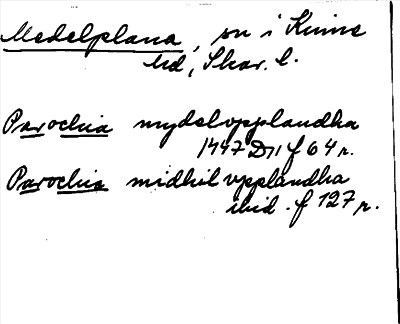 Medelplana, sn i Kinne
hd, Skar. l.
Parochia mydelvpplandha
1447 D11 f 64 r.
Parochia midhil vpplandha
ibid. f 127 r.